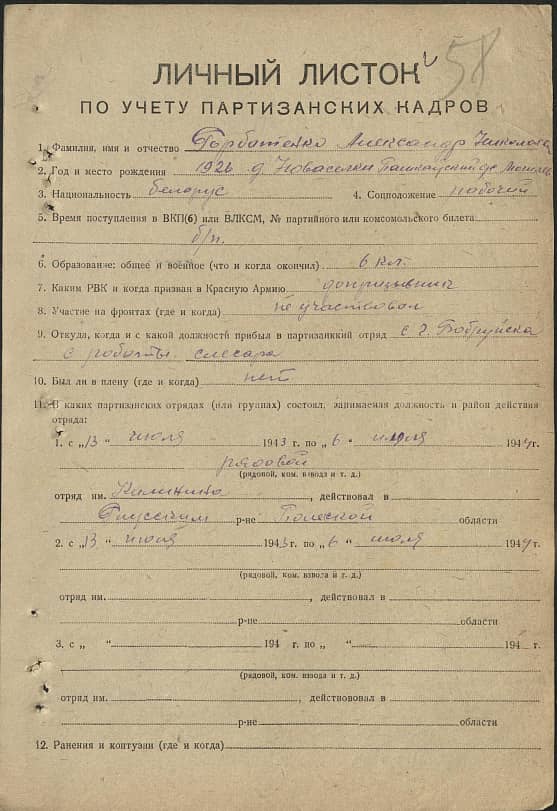 58
ЛИЧНЫЙ ЛИСТОК
ПО УЧЕТУ ПАРТИЗАНСКИХ КАДРОВ
1. Фамилия, имя и отчество Горбатенко Александр Николаев
2. Год и место рождения 1926 д. Новоселки
3. Национальность беларус 4. Соцположение рабочий
5. Время поступления в ВКП(б) или ВЛКСМ, № партийного или комсомольского билета
б/п.
6. Образование: общее и военное (что и когда окончил) 6 кл.
7. Каким РВК и когда призван в Красную Армию допризывник
8. Участие на фронтах (где и когда) не участвовал
9. Откуда, когда и с какой должность прибыл в партизанский отряд с г. Бобруйска
с работы слесаря
10. Был ли в плену (где и когда) нет
11. В каких партизанских отрядах (или группах) состоял, занимаемая должность и район действия
отряда:
1. с „13 “ июля 1943 г. по „6 “ июля 1944 г.
рядовой
(рядовой, ком. взвода и т. д.)
отряд им. Калинина , действовал в
Глусским р-не Полеской области
2. с „13 “ июля 1943 г. по „6 “ июля 1944 г.
(рядовой, ком. взвода и т. д.)
отряд им. , действовал в
р-не области
3. с „ “ 194 г. по „ “ 194 г.
(рядовой, ком. взвода и т. д.)
отряд им. , действовал в
р-не области
12. Ранения и контузии (где и когда)